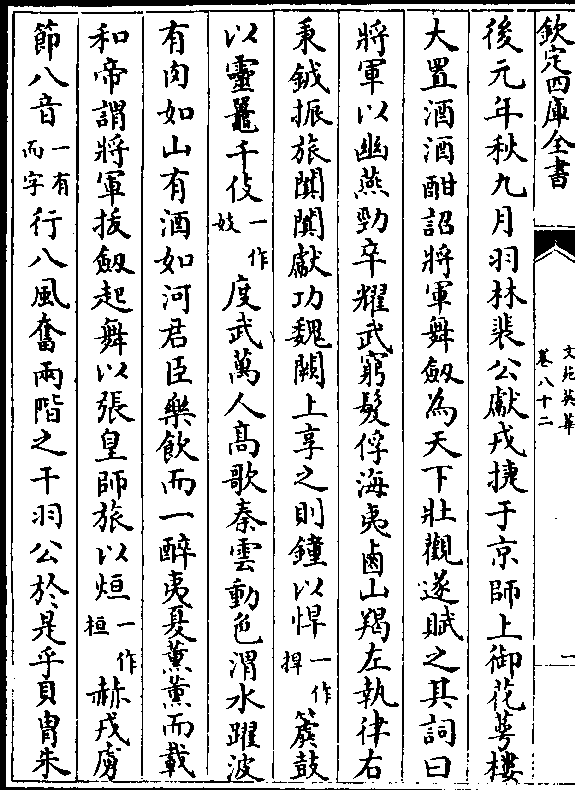 欽定四庫全書
文苑英華
卷八十二
一
後元年秋九月羽林裴公獻戎捷于京師上御花萼樓
大置酒酒酣詔將軍舞劔為天下壯觀遂賦之其詞曰
將軍以幽燕勁卒耀武窮髮俘海夷鹵山羯左執律右
秉鉞振旅闐闐獻功魏闕上享之則鐘以悍一作捍簴鼓
以靈鼉千伎一作妓度武萬人高歌秦雲動色渭水躍波
有肉如山有酒如河君臣樂飲而一醉夷夏薰薰而載
和帝謂將軍拔劔起舞以張皇師旅以烜一作桓赫戎虜
節八音一有而字行八風奮兩階之干羽公於是乎貝胄朱